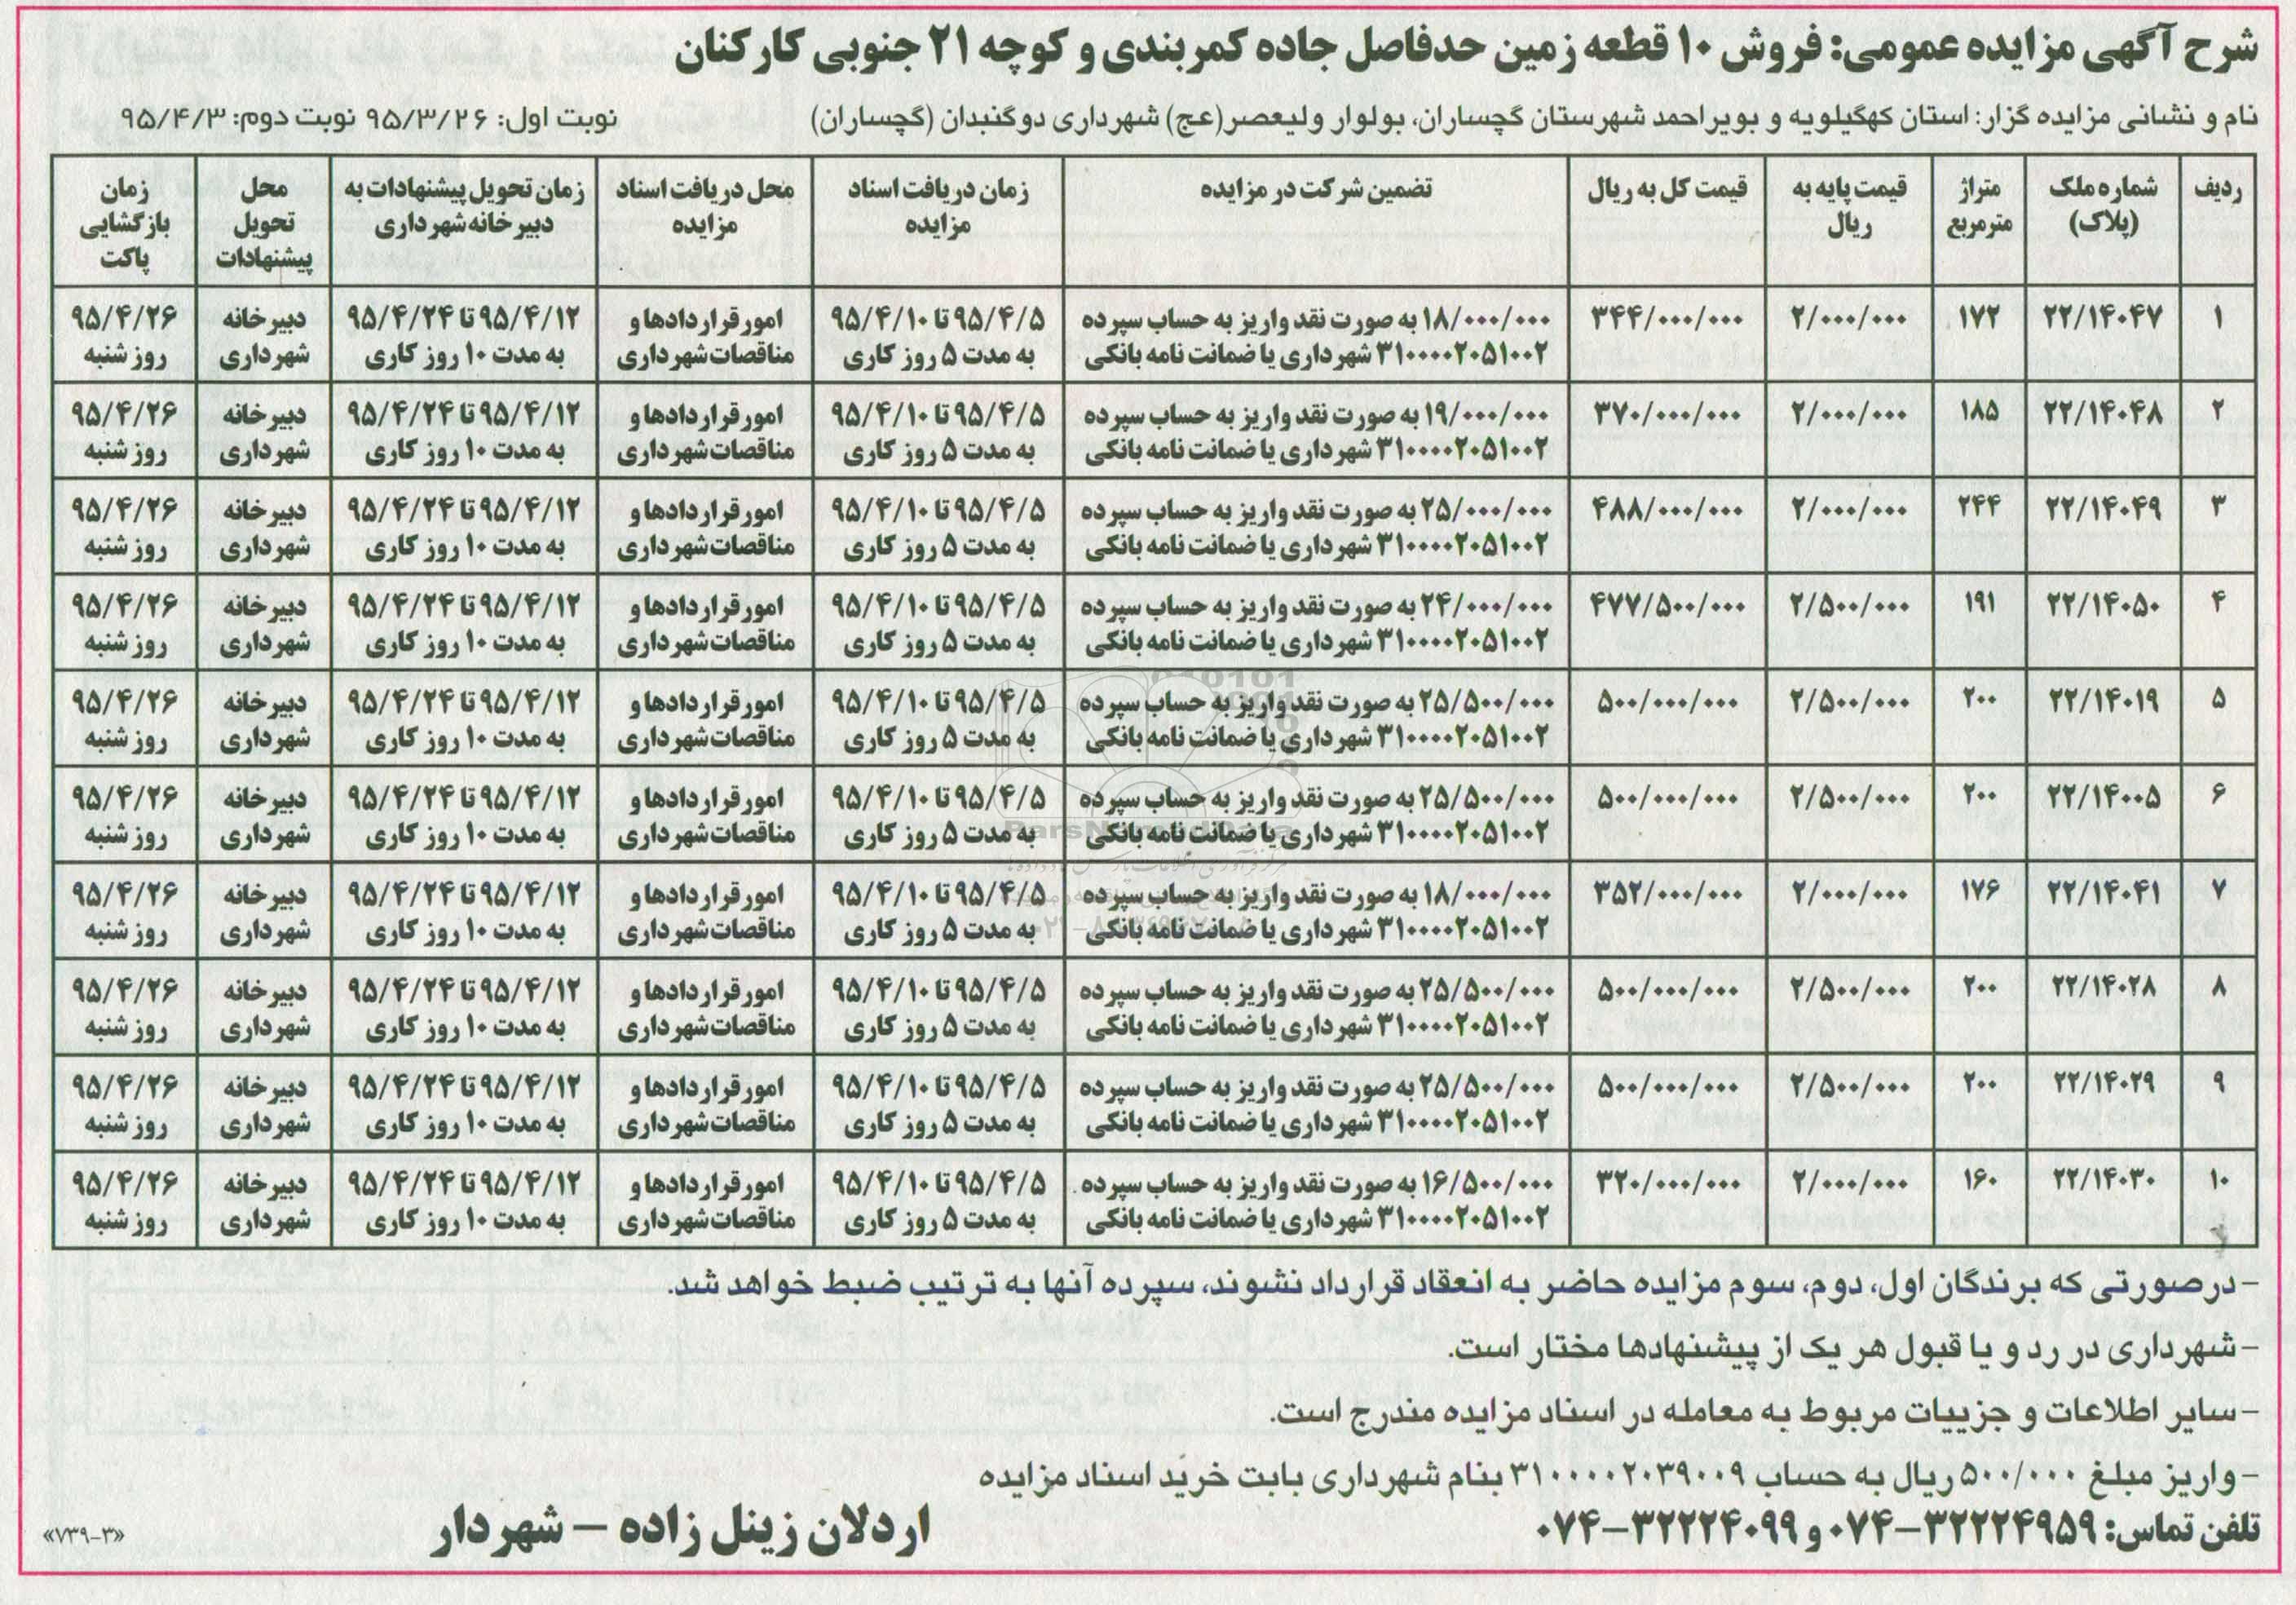 شرح آگهی مزایده عمومی: فروش ۱۰ قطعه زمین حدفاصل جاده کمربندی و کوچه ۲۱ جنوبی کارکنان
نام و نشانی مزایده گزار: استان کهگیلویه و بویراحمد شهرستان گچساران، بولوار ولیعصر(عج) شهرداری دوگنبدان (گچساران) نوبت اول: ۹۵/۳/۲۶ نوبت دوم: ۹۵/۴/۳
ردیف شماره ملک متراژ قیمت پایه به قیمت کل به ریال تضمین شرکت در مزایده زمان دریافت اسناد محل دریافت اسناد زمان تحویل پیشنهادات به محل زمان
(پلاک) مترمربع ریال مزایده مزایده دبیرخانه شهرداری تحویل بازگشایی
پیشنهادات پاکت
۱ ۲۲/۱۴۰۴۷ ۱۷۲ ۲/۰۰۰/۰۰۰ ۳۴۴/۰۰۰/۰۰۰ ۱۸/۰۰۰/۰۰۰ به صورت نقد واریز به حساب سپرده ۹۵/۴/۵ تا ۹۵/۴/۱۰ امور قراردادها و ۹۵/۴/۱۲ تا ۹۵/۴/۲۴ دبیرخانه ۹۵/۴/۲۶
۳۱۰۰۰۰۰۲۰۵۱۰۰۲ شهرداری یا ضمانت نامه بانکی به مدت ۵ روز کاری مناقصات شهرداری به مدت ۱۰ روز کاری شهرداری روز شنبه
۲ ۲۲/۱۴۰۴۸ ۱۸۵ ۲/۰۰۰/۰۰۰ ۳۷۰/۰۰۰/۰۰۰ ۱۹/۰۰۰/۰۰۰ به صورت نقد واریز به حساب سپرده ۹۵/۴/۵ تا ۹۵/۴/۱۰ امور قراردادها و ۹۵/۴/۱۲ تا ۹۵/۴/۲۴ دبیرخانه ۹۵/۴/۲۶
۳۱۰۰۰۰۰۲۰۵۱۰۰۲ شهرداری یا ضمانت نامه بانکی به مدت ۵ روز کاری مناقصات شهرداری به مدت ۱۰ روز کاری شهرداری روز شنبه
۳ ۲۲/۱۴۰۴۹ ۲۴۴ ۲/۰۰۰/۰۰۰ ۴۸۸/۰۰۰/۰۰۰ ۲۵/۰۰۰/۰۰۰ به صورت نقد واریز به حساب سپرده ۹۵/۴/۵ تا ۹۵/۴/۱۰ امور قراردادها و ۹۵/۴/۱۲ تا ۹۵/۴/۲۴ دبیرخانه ۹۵/۴/۲۶
۳۱۰۰۰۰۰۲۰۵۱۰۰۲ شهرداری یا ضمانت نامه بانکی به مدت ۵ روز کاری مناقصات شهرداری به مدت ۱۰ روز کاری شهرداری روز شنبه
۴ ۲۲/۱۴۰۵۰ ۱۹۱ ۲/۵۰۰/۰۰۰ ۴۷۷/۵۰۰/۰۰۰ ۲۴/۰۰۰/۰۰۰ به صورت نقد واریز به حساب سپرده ۹۵/۴/۵ تا ۹۵/۴/۱۰ امور قراردادها و ۹۵/۴/۱۲ تا ۹۵/۴/۲۴ دبیرخانه ۹۵/۴/۲۶
۳۱۰۰۰۰۰۲۰۵۱۰۰۲ شهرداری یا ضمانت نامه بانکی به مدت ۵ روز کاری مناقصات شهرداری به مدت ۱۰ روز کاری شهرداری روز شنبه
۵ ۲۲/۱۴۰۱۹ ۲۰۰ ۲/۵۰۰/۰۰۰ ۵۰۰/۰۰۰/۰۰۰ ۲۵/۵۰۰/۰۰۰ به صورت نقد واریز به حساب سپرده ۹۵/۴/۵ تا ۹۵/۴/۱۰ امور قراردادها و ۹۵/۴/۱۲ تا ۹۵/۴/۲۴ دبیرخانه ۹۵/۴/۲۶
۳۱۰۰۰۰۰۲۰۵۱۰۰۲ شهرداری یا ضمانت نامه بانکی به مدت ۵ روز کاری مناقصات شهرداری به مدت ۱۰ روز کاری شهرداری روز شنبه
۶ ۲۲/۱۴۰۰۵ ۲۰۰ ۲/۵۰۰/۰۰۰ ۵۰۰/۰۰۰/۰۰۰ ۲۵/۵۰۰/۰۰۰ به صورت نقد واریز به حساب سپرده ۹۵/۴/۵ تا ۹۵/۴/۱۰ امور قراردادها و ۹۵/۴/۱۲ تا ۹۵/۴/۲۴ دبیرخانه ۹۵/۴/۲۶
۳۱۰۰۰۰۰۲۰۵۱۰۰۲ شهرداری یا ضمانت نامه بانکی به مدت ۵ روز کاری مناقصات شهرداری به مدت ۱۰ روز کاری شهرداری روز شنبه
۷ ۲۲/۱۴۰۴۱ ۱۷۶ ۲/۰۰۰/۰۰۰ ۳۵۲/۰۰۰/۰۰۰ ۱۸/۰۰۰/۰۰۰ به صورت نقد واریز به حساب سپرده ۹۵/۴/۵ تا ۹۵/۴/۱۰ امور قراردادها و ۹۵/۴/۱۲ تا ۹۵/۴/۲۴ دبیرخانه ۹۵/۴/۲۶
۳۱۰۰۰۰۰۲۰۵۱۰۰۲ شهرداری یا ضمانت نامه بانکی به مدت ۵ روز کاری مناقصات شهرداری به مدت ۱۰ روز کاری شهرداری روز شنبه
۸ ۲۲/۱۴۰۲۸ ۲۰۰ ۲/۵۰۰/۰۰۰ ۵۰۰/۰۰۰/۰۰۰ ۲۵/۵۰۰/۰۰۰ به صورت نقد واریز به حساب سپرده ۹۵/۴/۵ تا ۹۵/۴/۱۰ امور قراردادها و ۹۵/۴/۱۲ تا ۹۵/۴/۲۴ دبیرخانه ۹۵/۴/۲۶
۳۱۰۰۰۰۰۲۰۵۱۰۰۲ شهرداری یا ضمانت نامه بانکی به مدت ۵ روز کاری مناقصات شهرداری به مدت ۱۰ روز کاری شهرداری روز شنبه
۹ ۲۲/۱۴۰۲۹ ۲۰۰ ۲/۵۰۰/۰۰۰ ۵۰۰/۰۰۰/۰۰۰ ۲۵/۵۰۰/۰۰۰ به صورت نقد واریز به حساب سپرده ۹۵/۴/۵ تا ۹۵/۴/۱۰ امور قراردادها و ۹۵/۴/۱۲ تا ۹۵/۴/۲۴ دبیرخانه ۹۵/۴/۲۶
۳۱۰۰۰۰۰۲۰۵۱۰۰۲ شهرداری یا ضمانت نامه بانکی به مدت ۵ روز کاری مناقصات شهرداری به مدت ۱۰ روز کاری شهرداری روز شنبه
۱۰ ۲۲/۱۴۰۳۰ ۱۶۰ ۲/۰۰۰/۰۰۰ ۳۲۰/۰۰۰/۰۰۰ ۱۶/۵۰۰/۰۰۰ به صورت نقد واریز به حساب سپرده ۹۵/۴/۵ تا ۹۵/۴/۱۰ امور قراردادها و ۹۵/۴/۱۲ تا ۹۵/۴/۲۴ دبیرخانه ۹۵/۴/۲۶
۳۱۰۰۰۰۰۲۰۵۱۰۰۲ شهرداری یا ضمانت نامه بانکی به مدت ۵ روز کاری مناقصات شهرداری به مدت ۱۰ روز کاری شهرداری روز شنبه
-درصورتی که برندگان اول، دوم، سوم مزایده حاضر به انعقاد قرارداد نشوند، سپرده آنها به ترتیب ضبط خواهد شد.
-شهرداری در رد و یا قبول هر یک از پیشنهادها مختار است.
-سایر اطلاعات و جزییات مربوط به معامله در اسناد مزایده مندرج است.
-واریز مبلغ ۵۰۰/۰۰۰ ریال به حساب ۳۱۰۰۰۰۰۲۰۳۹۰۰۹ بنام شهرداری بابت خرید اسناد مزایده
تلفن تماس: ۳۲۲۲۴۹۵۹-۰۷۴ و ۳۲۲۲۴۰۹۹-۰۷۴ اردلان زینل زاده – شهردار «۷۳۹-۳»